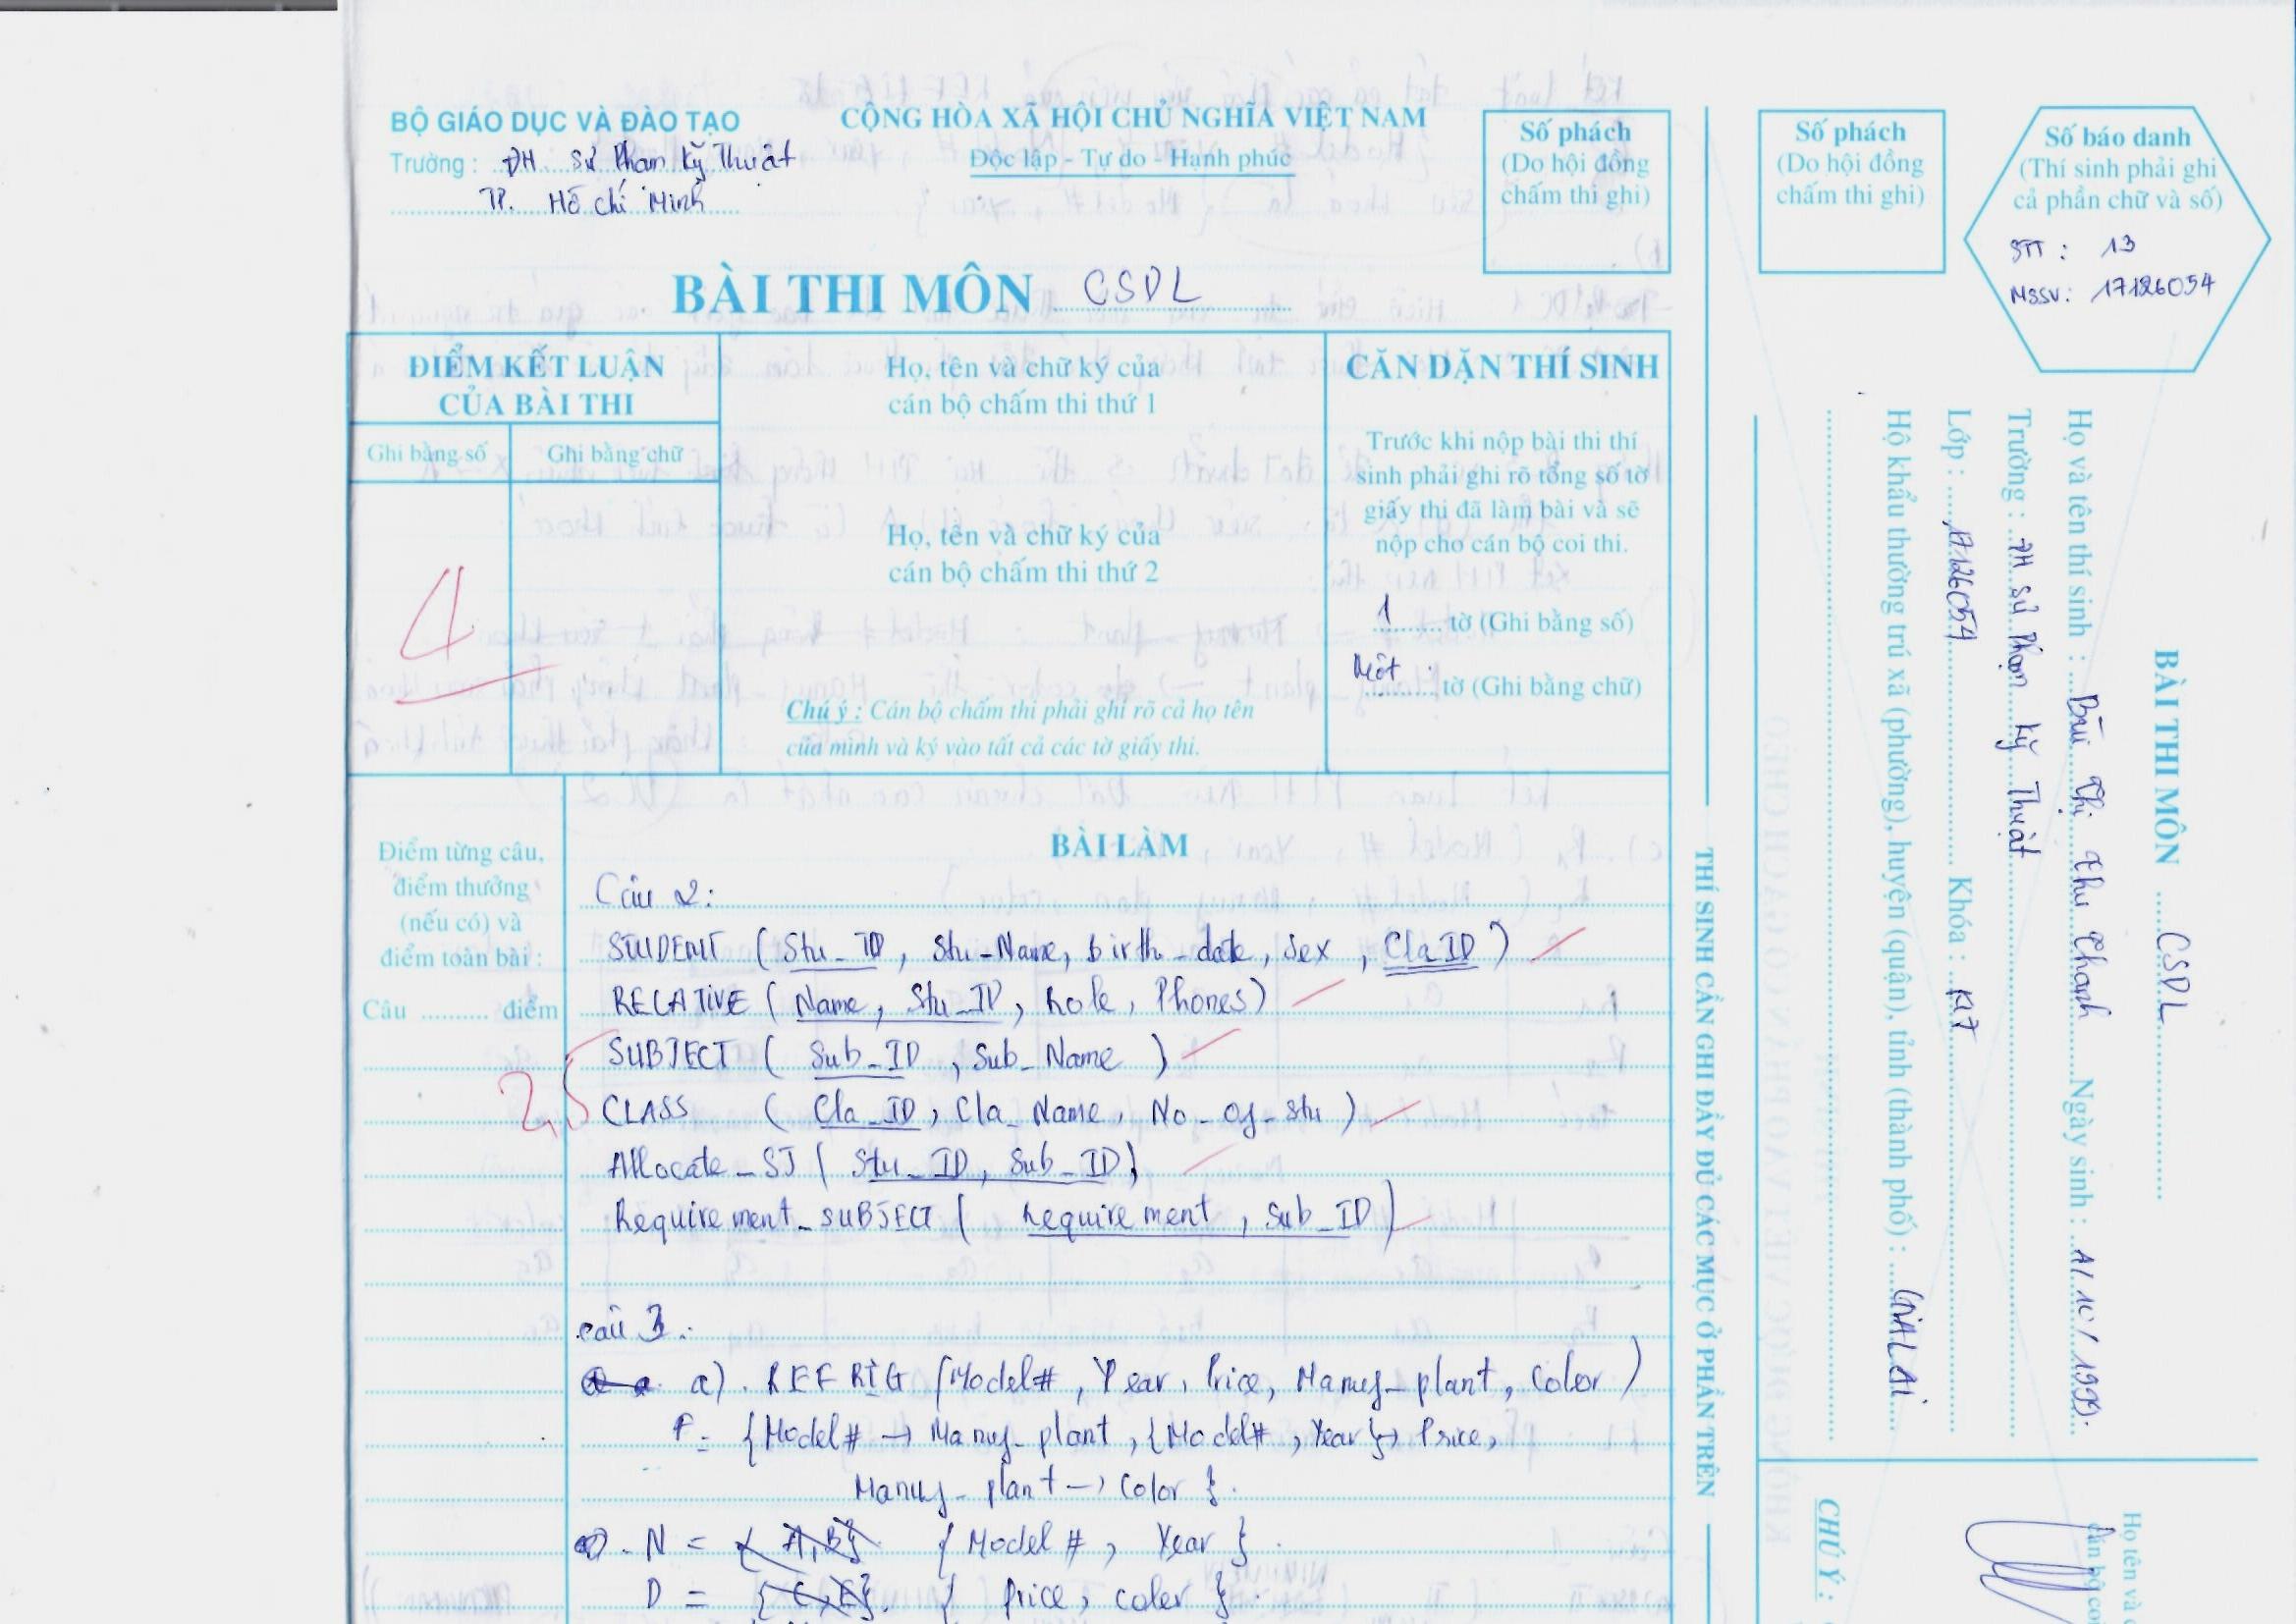 BỘ GIÁO DỤC VÀ ĐÀO TẠO
Trường : ĐH. Sư Phạm Kỹ Thuật
TP. Hồ Chí Minh
CỘNG HÒA XÃ HỘI CHỦ NGHĨA VIỆT NAM
Độc lập - Tự do - Hạnh phúc
Số phách
(Do hội đồng
chấm thi ghi)
BÀI THI MÔN CSDL
ĐIỂM KẾT LUẬN
CỦA BÀI THI
Ghi bằng số
Ghi bằng chữ
4
Họ, tên và chữ ký của
cán bộ chấm thi thứ 1
Họ, tên và chữ ký của
cán bộ chấm thi thứ 2
Chú ý : Cán bộ chấm thi phải ghi rõ cả họ tên
của mình và ký vào tất cả các tờ giấy thi.
CĂN DẶN THÍ SINH
Trước khi nộp bài thi thí
sinh phải ghi rõ tổng số tờ
giấy thi đã làm bài và sẽ
nộp cho cán bộ coi thi.
1 tờ (Ghi bằng số)
Một tờ (Ghi bằng chữ)
Điểm từng câu,
điểm thưởng
(nếu có) và
điểm toàn bài :
Câu .......... điểm
2,5
BÀI LÀM
Câu 2:
STUDENT ( Stu_ID, Stu_Name, birth_date, sex, Cla_ID )
RELATIVE ( Name, Stu_ID, Role, Phones)
SUBJECT ( Sub_ID, Sub_Name )
CLASS ( Cla_ID, Cla_Name, No_of_stu )
Allocate_SJ ( Stu_ID, Sub_ID)
Requirement_SUBJECT ( Requirement, Sub_ID)
câu 3 :
a). REFRIG (Model#, Year, Price, Manuf_plant, Color)
F = {Model# → Manuf_plant, {Model#, Year} → Price,
Manuf_plant → color }.
N = {Model #, Year }.
D = { price, color }.
THÍ SINH CẦN GHI ĐẦY ĐỦ CÁC MỤC Ở PHẦN TRÊN
Số phách
(Do hội đồng
chấm thi ghi)
Số báo danh
(Thí sinh phải ghi
cả phần chữ và số)
STT : 13
MSSV: 17126054
BÀI THI MÔN CSDL
Họ và tên thí sinh : Bùi Thị Thu Chanh Ngày sinh :
Trường : ĐH Sư Phạm Kỹ Thuật
Lớp : 17126054 Khóa : K17
Hộ khẩu thường trú xã (phường), huyện (quận), tỉnh (thành phố) : GIA LAI
CHÚ Ý :
Họ tên và
cán bộ